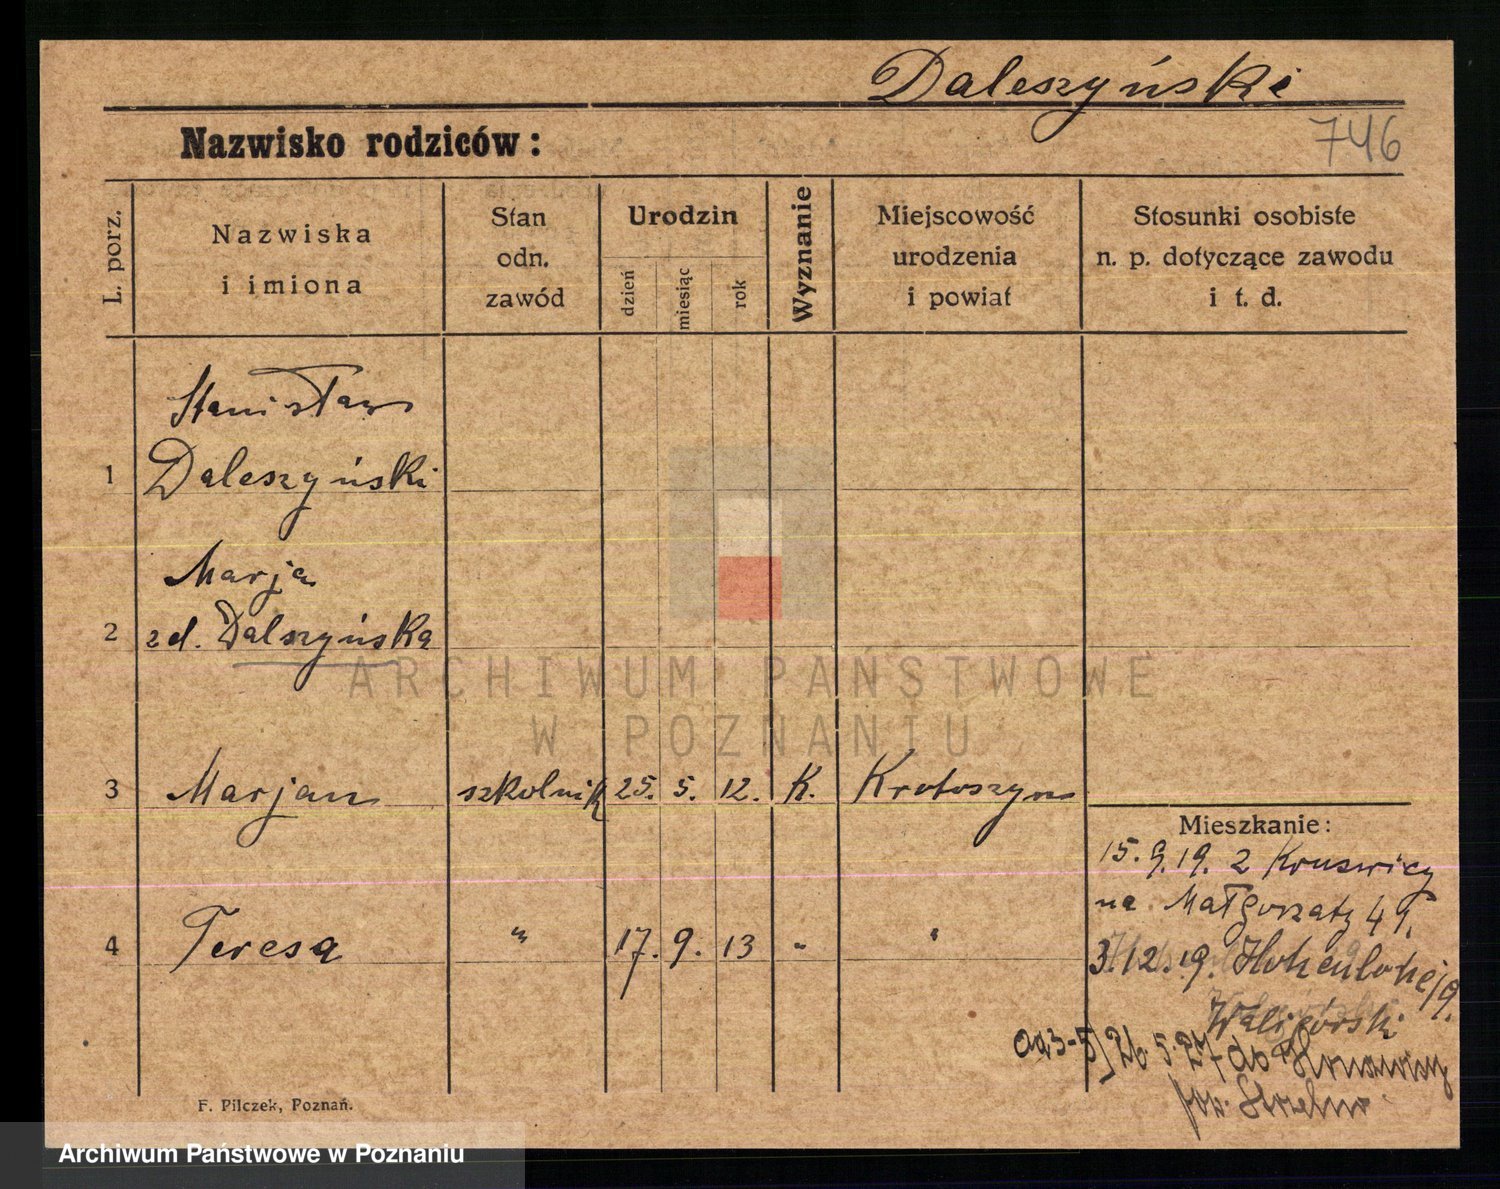 Daleszyński
Nazwisko rodziców:
746
L. porz.
Nazwiska
i imiona
Stan
odn.
zawód
Urodzin
dzień
miesiąc
rok
Wyznanie
Miejscowość
urodzenia
i powiat
Stosunki osobiste
n. p. dotyczące zawodu
i t. d.
Stanisław
1 Daleszyński
Marja
2 zd. Dalszyńska
ARCHIWUM PAŃSTWOWE
W POZNANIU
3 Marjan szkolnik 25. 5. 12. K. Krotoszyn
Mieszkanie:
15. 9. 19. z Kruswicy
na Małgorzaty 4
4 Teresa " 17. 9. 13 " "
3. 12. 19. Hohenlohej 9.
Waligórski
26. 5. 27 do
pow. Strzelno
F. Pilczek, Poznań.
Archiwum Państwowe w Poznaniu